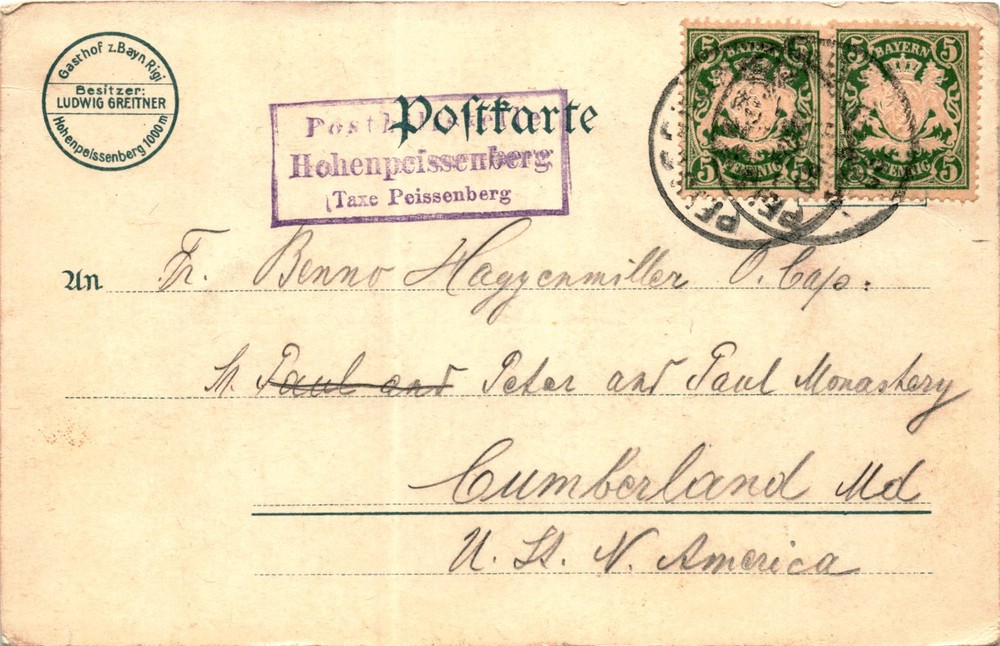 Gasthof z. Bayn Rigi
Besitzer:
LUDWIG GREITNER
Hohenpeissenberg 1000 m
Postkarte
Hohenpeissenberg
(Taxe Peissenberg
5 BAYERN 5
5 PFENNIG 5
5 BAYERN 5
5 PFENNIG 5
An Fr. Benno Hagyenmiller O. Cap:
St. Paul and Peter and Paul Monastery
Cumberland Md
U. St. N. America